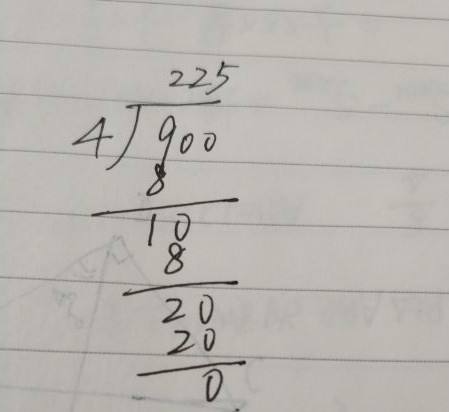 225
4)900
8
10
8
20
20
0